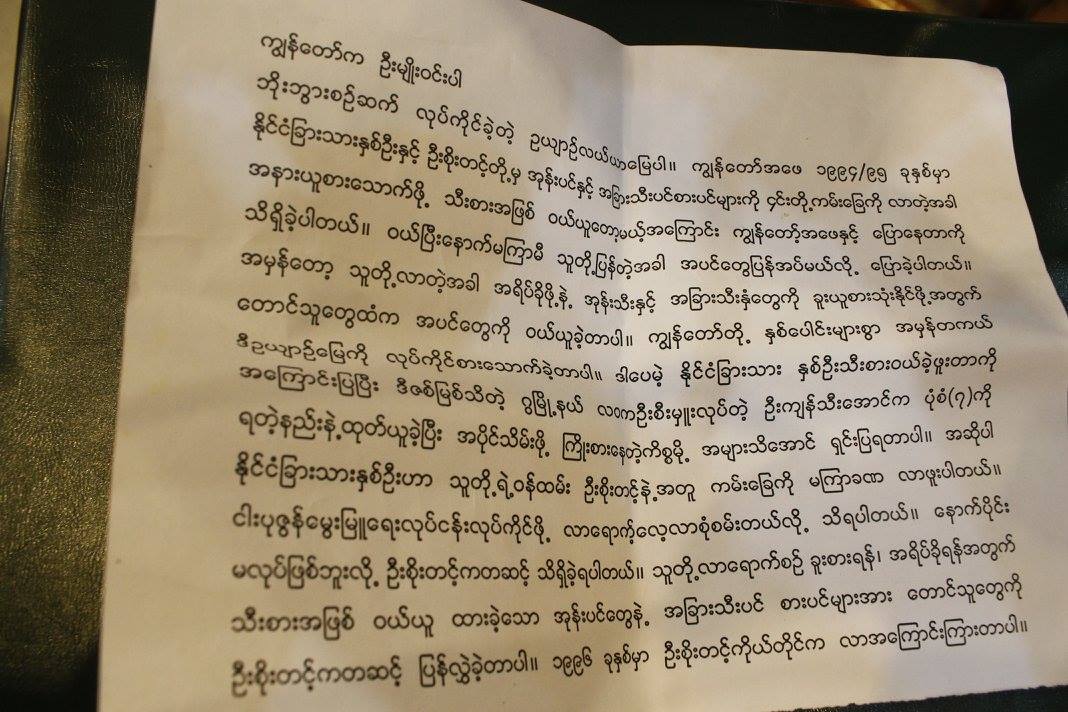 ကျွန်တော်က ဦးမျိုးဝင်းပါ
ဘိုးဘွားစဉ်ဆက် လုပ်ကိုင်ခဲ့တဲ့ ဥယျာဉ်လယ်ယာမြေပါ။ ကျွန်တော်အဖေ ၁၉၉၄/၉၅ ခုနှစ်မှာ
နိုင်ငံခြားသားနှစ်ဦးနှင့် ဦးစိုးတင့်တို့မှ အုန်းပင်နှင့် အခြားသီးပင်စားပင်များကို ၄င်းတို့ကမ်းခြေကို လာတဲ့အခါ
အနားယူစားသောက်ဖို့ သီးစားအဖြစ် ဝယ်ယူတော့မယ့်အကြောင်း ကျွန်တော့်အဖေနှင့် ပြောနေတာကို
သိရှိခဲ့ပါတယ်။ ဝယ်ပြီးနောက်မကြာမီ သူတို့ပြန်တဲ့အခါ အပင်တွေပြန်အပ်မယ်လို့ ပြောခဲ့ပါတယ်။
အမှန်တော့ သူတို့လာတဲ့အခါ အရိပ်ခိုဖို့နဲ့ အုန်းသီးနှင့် အခြားသီးနှံတွေကို ခူးယူစားသုံးနိုင်ဖို့အတွက်
တောင်သူတွေထံက အပင်တွေကို ဝယ်ယူခဲ့တာပါ။ ကျွန်တော်တို့ နှစ်ပေါင်းများစွာ အမှန်တကယ်
ဒီဥယျာဉ်မြေကို လုပ်ကိုင်စားသောက်ခဲ့တာပါ။ ဒါပေမဲ့ နိုင်ငံခြားသား နှစ်ဦးသီးစားဝယ်ခဲ့ဖူးတာကို
အကြောင်းပြပြီး ဒီဇစ်မြစ်သိတဲ့ ဂွမြို့နယ် လ၀ကဦးစီးမှူးလုပ်တဲ့ ဦးကျန်သီးအောင်က ပုံစံ(၇)ကို
ရတဲ့နည်းနဲ့ထုတ်ယူခဲ့ပြီး အပိုင်သိမ်းဖို့ ကြိုးစားနေတဲ့ကိစ္စမို့ အများသိအောင် ရှင်းပြရတာပါ။ အဆိုပါ
နိုင်ငံခြားသားနှစ်ဦးဟာ သူတို့ရဲ့ဝန်ထမ်း ဦးစိုးတင့်နဲ့အတူ ကမ်းခြေကို မကြာခဏ လာဖူးပါတယ်။
ငါးပုဇွန်မွေးမြူရေးလုပ်ငန်းလုပ်ကိုင်ဖို့ လာရောက်လေ့လာစုံစမ်းတယ်လို့ သိရပါတယ်။ နောက်ပိုင်း
မလုပ်ဖြစ်ဘူးလို့ ဦးစိုးတင့်ကတဆင့် သိရှိခဲ့ရပါတယ်။ သူတို့လာရောက်စဉ် ခူးစားရန်၊ အရိပ်ခိုရန်အတွက်
သီးစားအဖြစ် ဝယ်ယူ ထားခဲ့သော အုန်းပင်တွေနဲ့ အခြားသီးပင် စားပင်များအား တောင်သူတွေကို
ဦးစိုးတင့်ကတဆင့် ပြန်လွှဲခဲ့တာပါ။ ၁၉၉၆ ခုနှစ်မှာ ဦးစိုးတင့်ကိုယ်တိုင်က လာအကြောင်းကြားတာပါ။